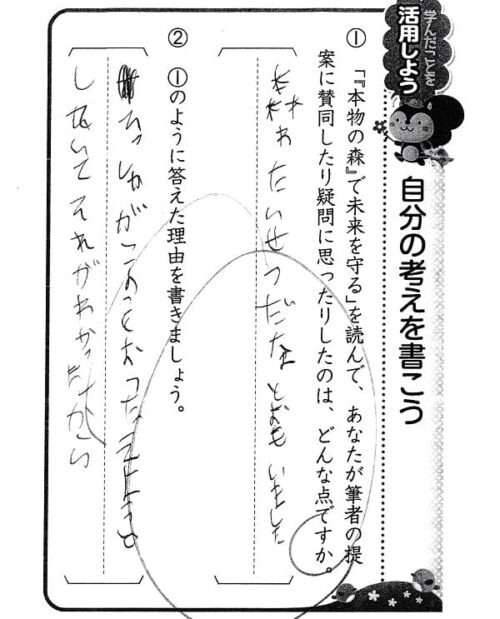 学んだことを
活用しよう
自分の考えを書こう
① 「『本物の森』で未来を守る」を読んで、あなたが筆者の提
案に賛同したり疑問に思ったりしたのは、どんな点ですか。
たいせつだなとおもいました
② ①のように答えた理由を書きましょう。
ひっしゃがこのことをつたえようと
していてそれがわかったから